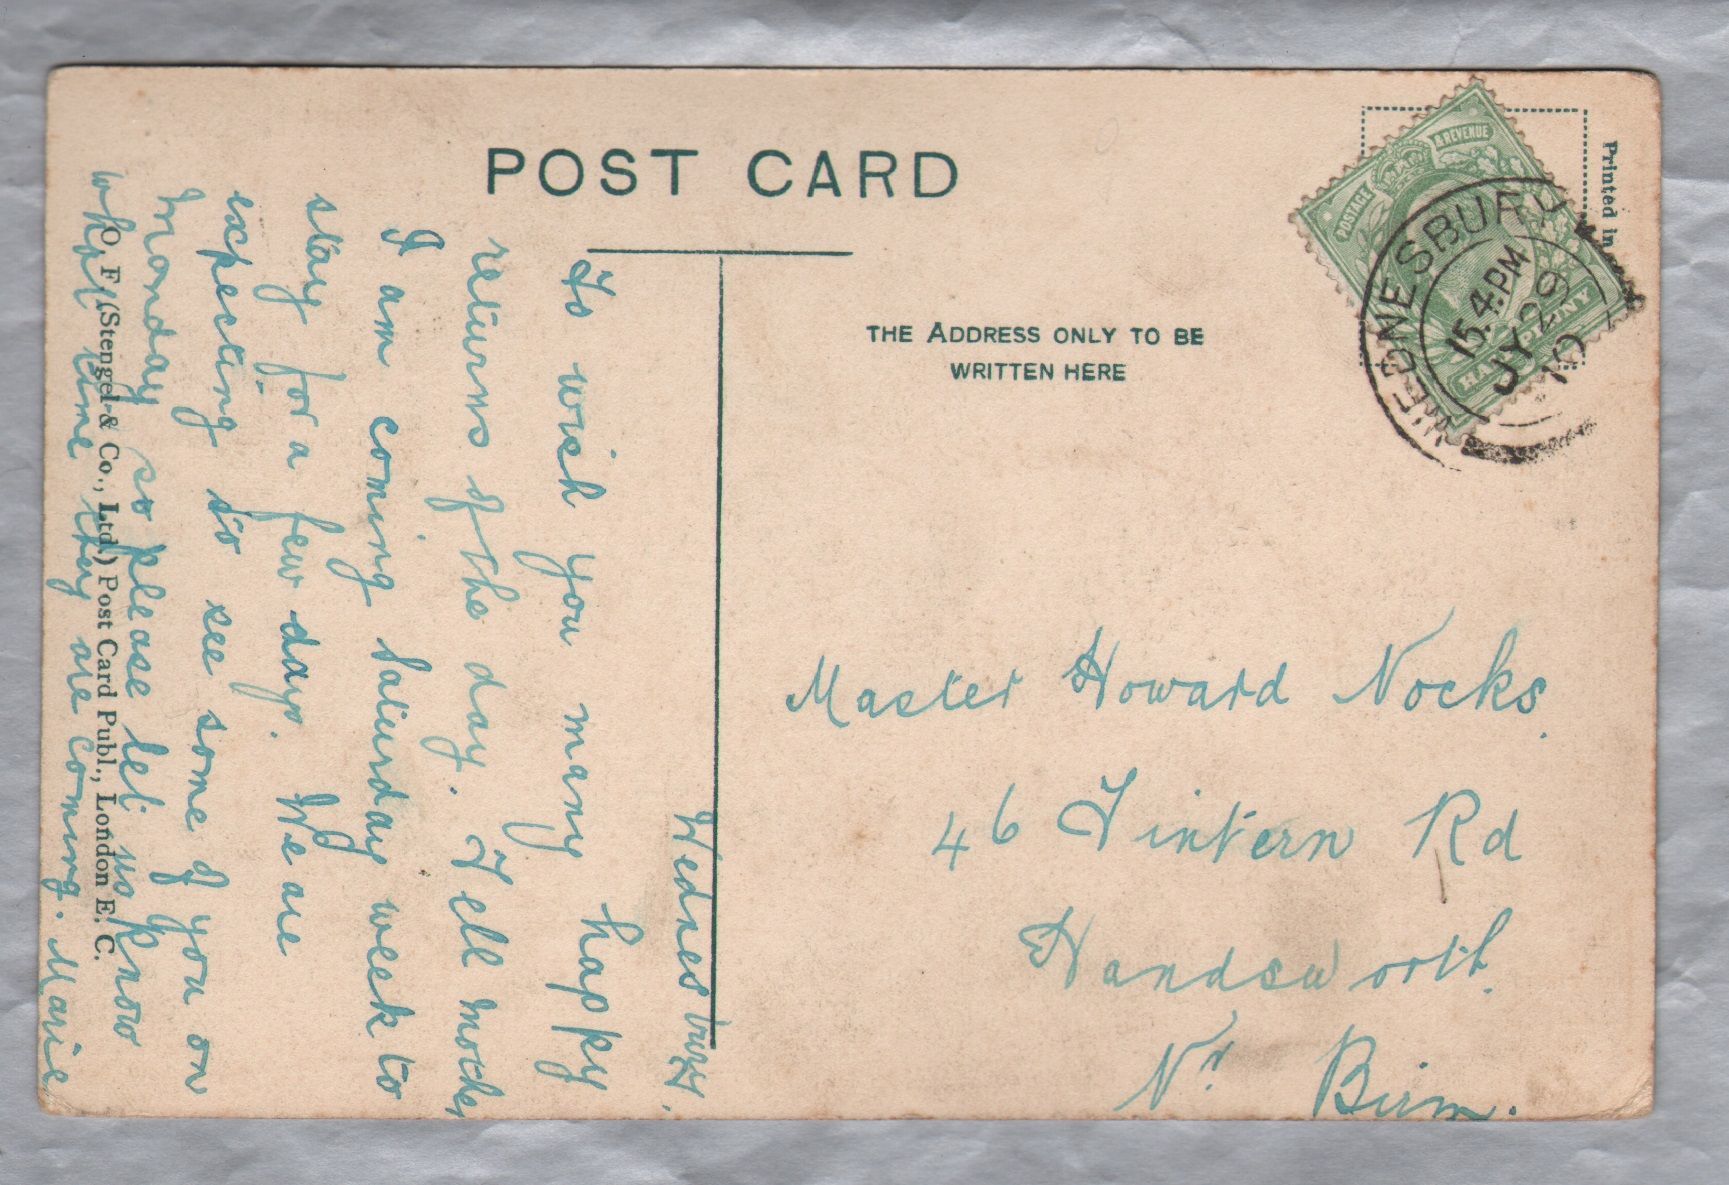 POST CARD
THE ADDRESS ONLY TO BE
WRITTEN HERE
Printed in
POSTAGE & REVENUE
HALFPENNY
WEDNESBURY
15. 4. PM
JY 29
10
Wednesbury.
To wish you many happy
returns of the day. Tell mother
I am coming Saturday week to
stay for a few days. We are
expecting to see some of you on
Monday so please let us know
what time they are coming. Marie
O. F. (Stengel & Co., Ltd.) Post Card Publ., London E. C.
Master Howard Nocks.
46 Tintern Rd
Handsworth.
Nr Birm.